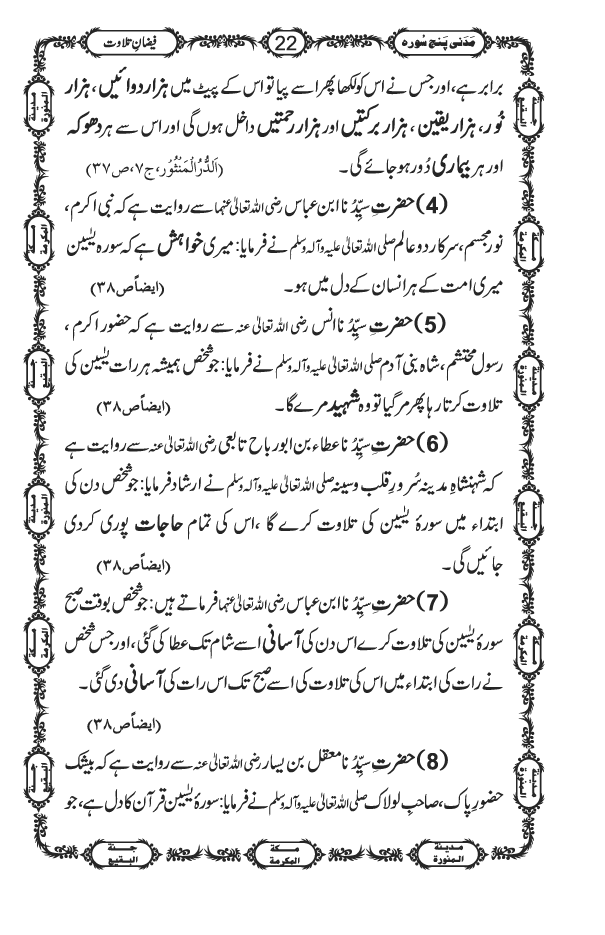 مَدَنی پَنج سُورہ
22
فیضانِ تلاوت
برابر ہے، اور جس نے اس کو لکھا پھر اسے پیا تو اس کے پیٹ میں ہزار دوائیں، ہزار
نُور، ہزار یقین، ہزار برکتیں اور ہزار رحمتیں داخل ہوں گی اور اس سے ہر دھوکہ
اور ہر بیماری دُور ہو جائے گی۔ (اَلدُّرُّالْمَنْثُوْر، ج۷، ص۳۷)
(4) حضرتِ سیِّدُ نا ابن عباس رضی اللہ تعالیٰ عنہما سے روایت ہے کہ نبی اکرم،
نور مجسم، سرکار دو عالم صلی اللہ تعالیٰ علیہ وآلہ وسلم نے فرمایا: میری خواہش ہے کہ سورہ یٰسٓیں
میری امت کے ہر انسان کے دل میں ہو۔ (ایضاًص۳۸)
(5) حضرتِ سیِّدُ نا انس رضی اللہ تعالیٰ عنہ سے روایت ہے کہ حضور اکرم،
رسول محتشم، شاہ بنی آدم صلی اللہ تعالیٰ علیہ وآلہ وسلم نے فرمایا: جو شخص ہمیشہ ہر رات یٰسٓیں کی
تلاوت کرتا رہا پھر مر گیا تو وہ شہید مرے گا۔ (ایضاًص۳۸)
(6) حضرتِ سیِّدُ نا عطاء بن ابو رباح تابعی رضی اللہ تعالیٰ عنہ سے روایت ہے
کہ شہنشاہِ مدینہ سُرورِ قلب وسینہ صلی اللہ تعالیٰ علیہ وآلہ وسلم نے ارشاد فرمایا: جو شخص دن کی
ابتداء میں سورۂ یٰسٓیں کی تلاوت کرے گا، اس کی تمام حاجات پوری کردی
جائیں گی۔ (ایضاًص۳۸)
(7) حضرتِ سیِّدُ نا ابن عباس رضی اللہ تعالیٰ عنہما فرماتے ہیں: جو شخص بوقت صبح
سورۂ یٰسٓیں کی تلاوت کرے اس دن کی آسانی اسے شام تک عطا کی گئی، اور جس شخص
نے رات کی ابتداء میں اس کی تلاوت کی اسے صبح تک اس رات کی آسانی دی گئی۔
(ایضاًص۳۸)
(8) حضرتِ سیِّدُ نا معقل بن یسار رضی اللہ تعالیٰ عنہ سے روایت ہے کہ بیشک
حضورِ پاک، صاحبِ لولاک صلی اللہ تعالیٰ علیہ وآلہ وسلم نے فرمایا: سورۂ یٰسٓیں قرآن کا دل ہے، جو
مدينة المنورة
مكة المكرمة
جنة البقيع
جنة البقيع
مكة المكرمة
مدينة المنورة
جنة البقيع
مكة المكرمة
مدينة المنورة
مدينة المنورة
مكة المكرمة
جنة البقيع
مدينة المنورة
مكة المكرمة
جنة البقيع